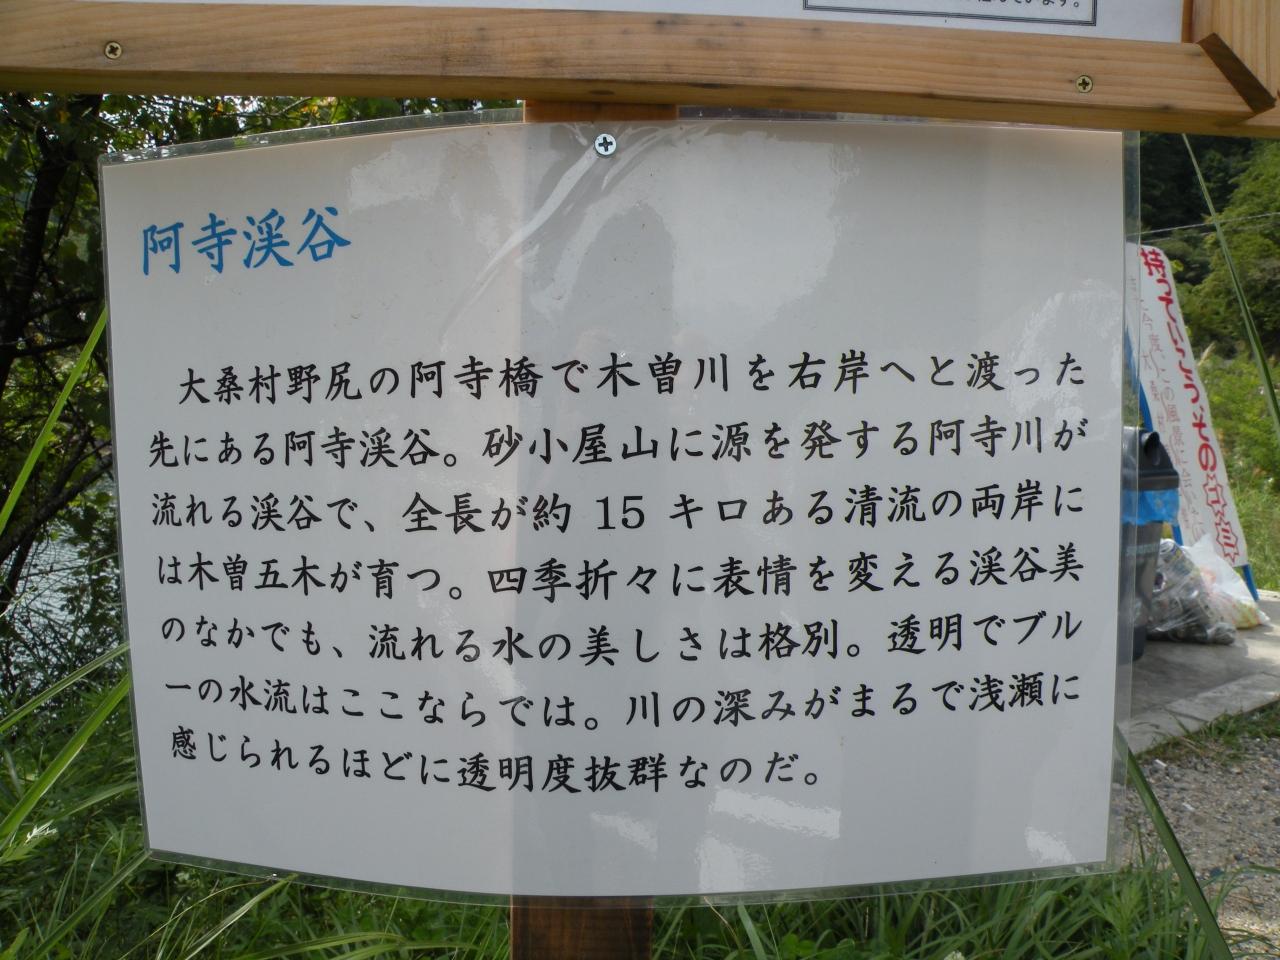 阿寺渓谷
大桑村野尻の阿寺橋で木曽川を右岸へと渡った
先にある阿寺渓谷。砂小屋山に源を発する阿寺川が
流れる渓谷で、全長が約 15 キロある清流の両岸に
は木曽五木が育つ。四季折々に表情を変える渓谷美
のなかでも、流れる水の美しさは格別。透明でブル
ーの水流はここならでは。川の深みがまるで浅瀬に
感じられるほどに透明度抜群なのだ。
持っていこう、そのゴミ